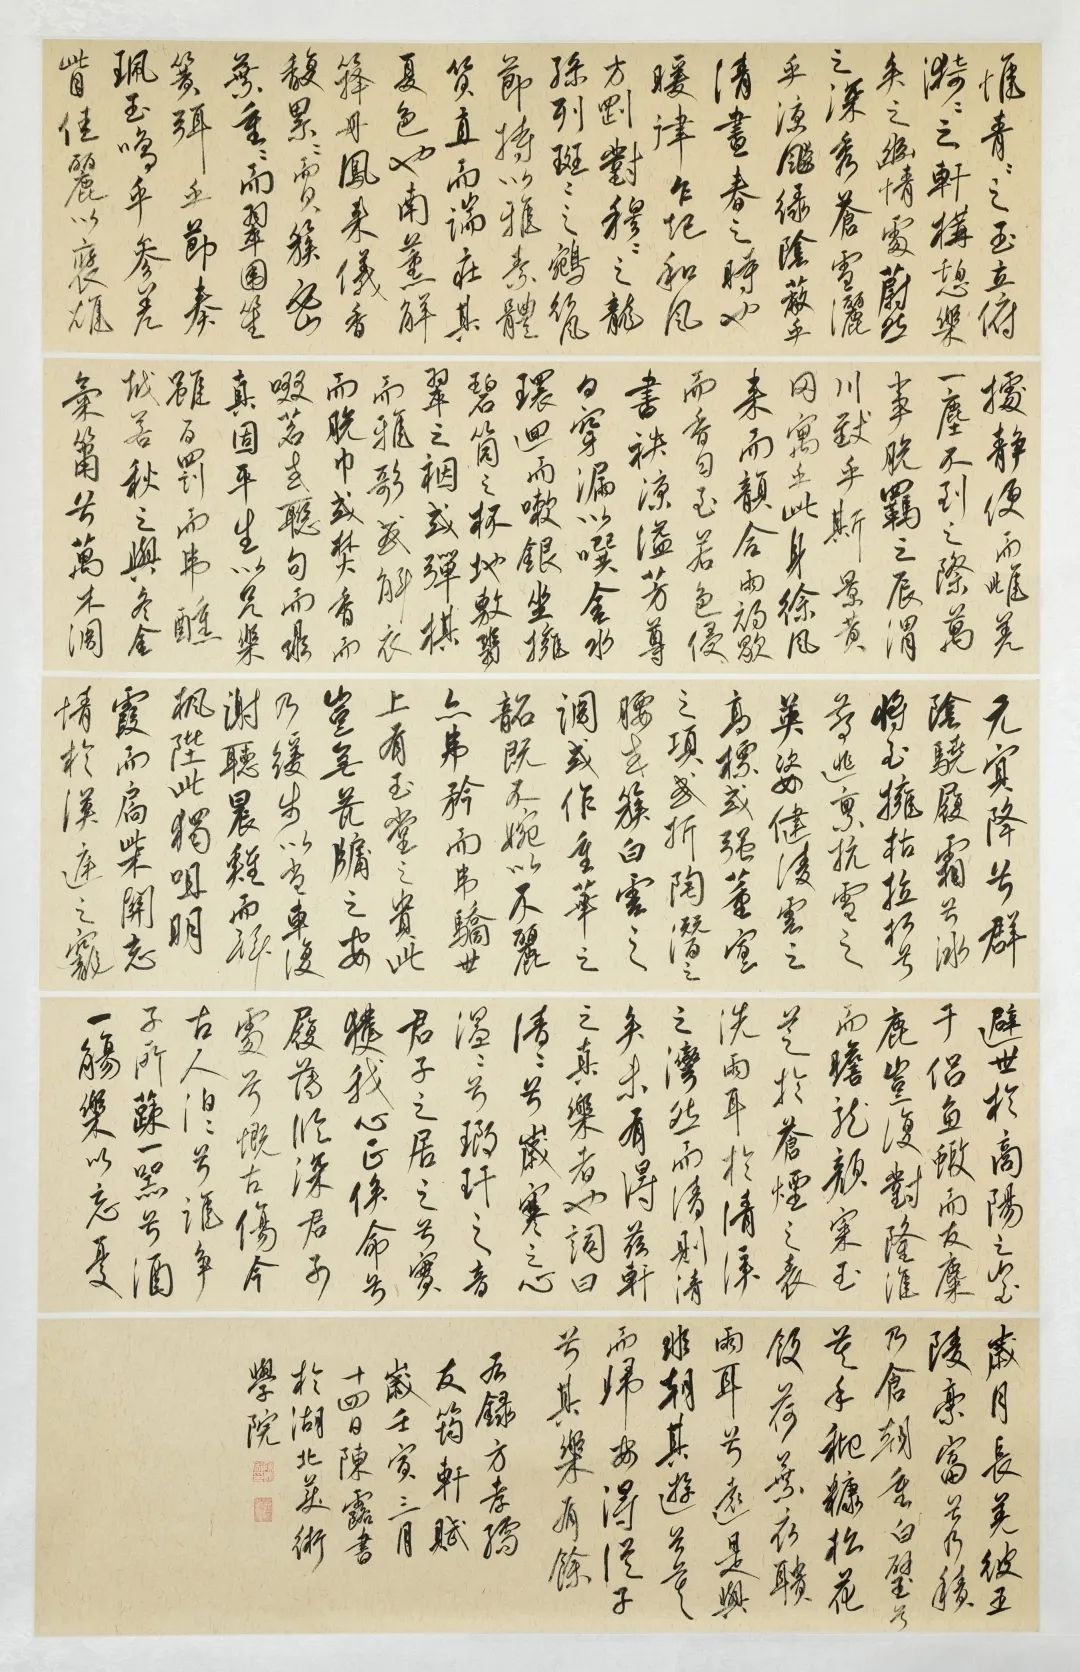 惟青々之玉立俯
漪々之軒構憩樂
矣之幽情處蔚然
之深秀蒼雪灑
乎涼颸綠陰蔽乎
清晝春之時也
暖律乍起和風
方劌對穆々之龍
孫列斑々之鵷雛
節持以雅素體
質直而端莊其
夏色也南薰解
籜丹鳳來儀香
馥累々而貫簇密
葉重々而翠圍笙
簧彈兮節奏
珮玉鳴乎參差
皆佳麗以
據静便而唯羌
一塵不到之際萬
事脫羈之辰渭
川猷乎斯景黄
岡寓乎此身徐風
來而韻合雨初歇
而香勻至若色侵
書袂涼溢芳尊
日穿漏以噀金水
環迴而嗽銀坐擁
碧筒之杯地敷翡
翠之裀或彈棋
而雅歌或解衣
而脫巾或焚香而
啜茗或聽句而
真固平生以兄樂
雖百罰而弗醺
越若秋之興冬金
氣籥兮萬木凋
元冥降兮群
陰驍履霜兮冰
將至擁枯拉朽兮
葶逃禀抗雪之
英姿健凌雲之
高標或强董宣
之項或折陶潛之
腰或簇白雲之
調或作重華之
韶既不婉以不麗
亦弗矜而弗驕世
上有玉堂之貴此
豈無蓬牖之安
乃緩步以當車復
謝聽晨雞而辭
楓陛此獨咀明
霞而扃柴關忘
情於漢廷之寵
避世於高陽之室
干侣魚蝦而友麋
鹿豈復對隆準
而瞻龍顏寀玉
芝於蒼煙之表
洗雨耳於清溪
之灣然而清則清
矣未有得茲軒
之真樂者也詞曰
清々兮歲寒之心
溫々兮琅玕之音
君子之居之兮實
獲我心正俟命兮
履薄臨深君子
處兮慨古傷今
古人泊々兮誰争
子所蘇一器兮酒
一觴樂以忘憂
歲月長羌彼五
陵豪富兮乃積
乃倉朝重白璧兮
暮手粃糠松花
飯荷葉衣聵
雨耳兮遠是與
非朝其遊兮暮
而歸安得從子
兮其樂有餘
右録方孝孺
友筠軒賦
歲壬寅三月
十四日陳露書
於湖北美術
學院